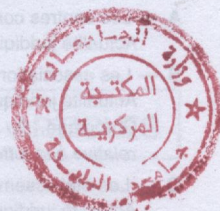 وزارة الجامعات
المكتبة
المركزية
جامعة البليدة